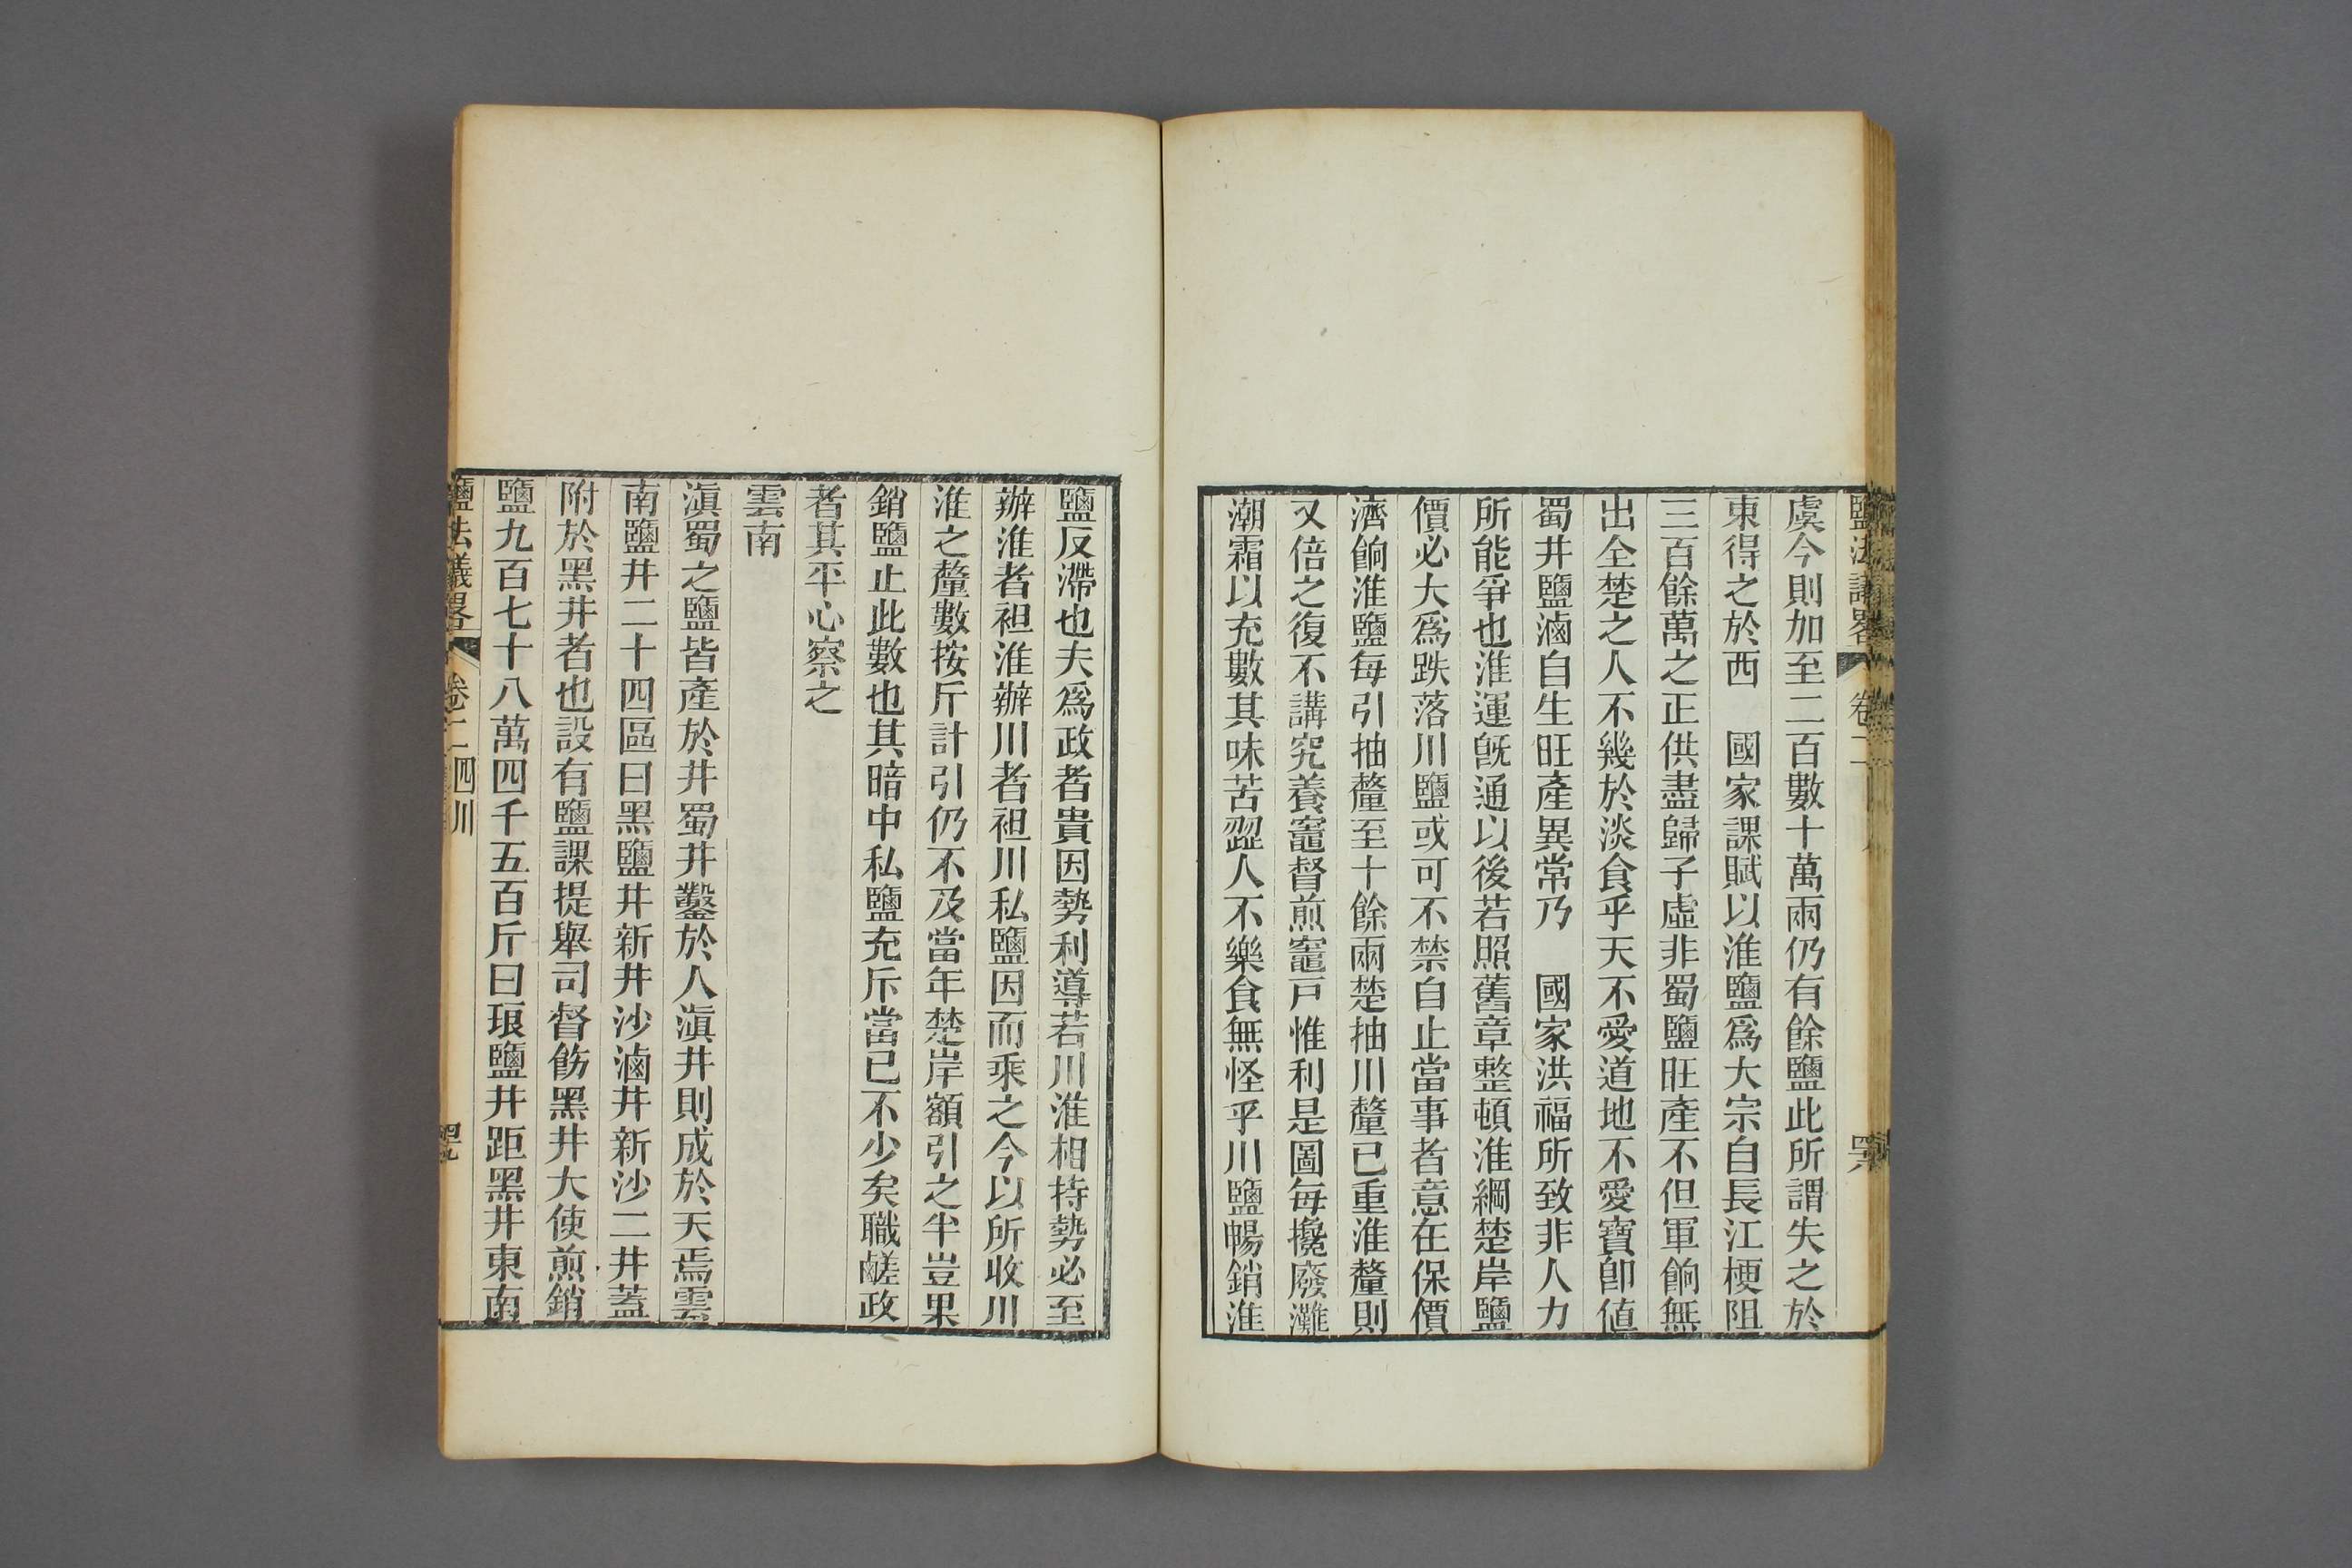 鹽法議畧 卷二 四六
虞今則加至二百數十萬兩仍有餘鹽此所謂失之於
東得之於西　國家課賦以淮鹽爲大宗自長江梗阻
三百餘萬之正供盡歸子虛非蜀鹽旺產不但軍餉無
出全楚之人不幾於淡食乎天不愛道地不愛寶卽値
蜀井鹽滷自生旺產異常乃　國家洪福所致非人力
所能爭也淮運旣通以後若照舊章整頓淮綱楚岸鹽
價必大爲跌落川鹽或可不禁自止當事者意在保價
濟餉淮鹽每引抽釐至十餘兩楚抽川釐已重淮釐則
又倍之復不講究養竈督煎竈戸惟利是圖每攙廢灘
潮霜以充數其味苦澀人不樂食無怪乎川鹽暢銷淮
鹽反滯也夫爲政者貴因勢利導若川淮相持勢必至
辦淮者袒淮辦川者袒川私鹽因而乘之今以所收川
淮之釐數按斤計引仍不及當年楚岸額引之半豈果
銷鹽止此數也其暗中私鹽充斥當已不少矣職鹾政
者其平心察之
雲南
滇蜀之鹽皆產於井蜀井鑿於人滇井則成於天焉雲
南鹽井二十四區曰黑鹽井新井沙滷井新沙二井蓋
附於黑井者也設有鹽課提舉司督飭黑井大使煎銷
鹽九百七十八萬四千五百斤曰琅鹽井距黑井東南
鹽法議畧 卷二四川